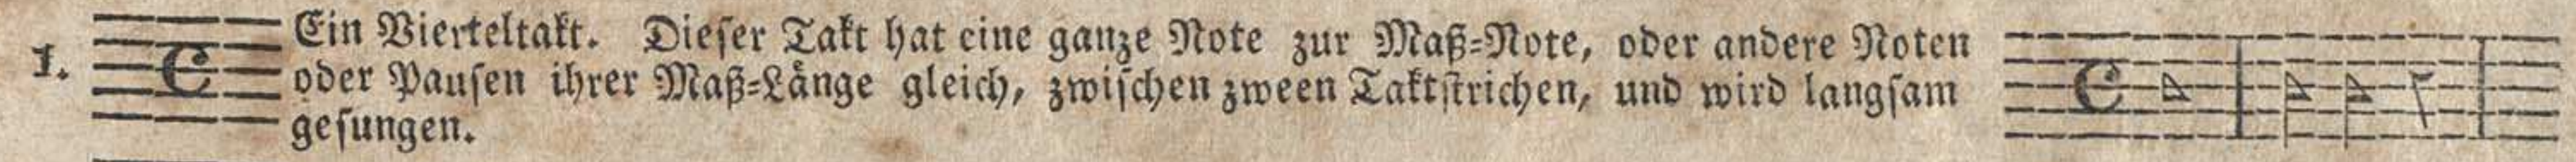 1. Ein Vierteltakt. Dieſer Takt hat eine ganze Note zur Maß-Note, oder andere Noten
oder Pauſen ihrer Maß-Länge gleich, zwiſchen zween Taktſtrichen, und wird langſam
geſungen.